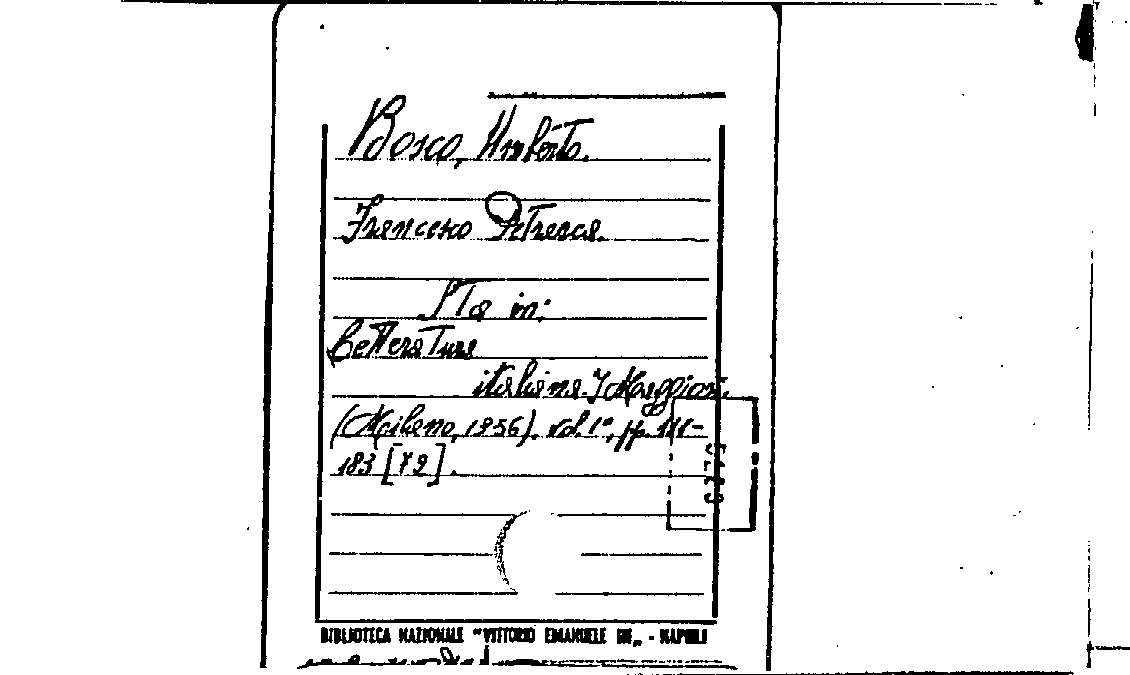 Bosco, Umberto.
Francesco Petrarca.
Sta in:
Letteratura
italiana. I Maggiori.
(Milano, 1956). vol. 1°, pp. 111-
183 [72].
BIBLIOTECA NAZIONALE "VITTORIO EMANUELE III„ - NAPOLI